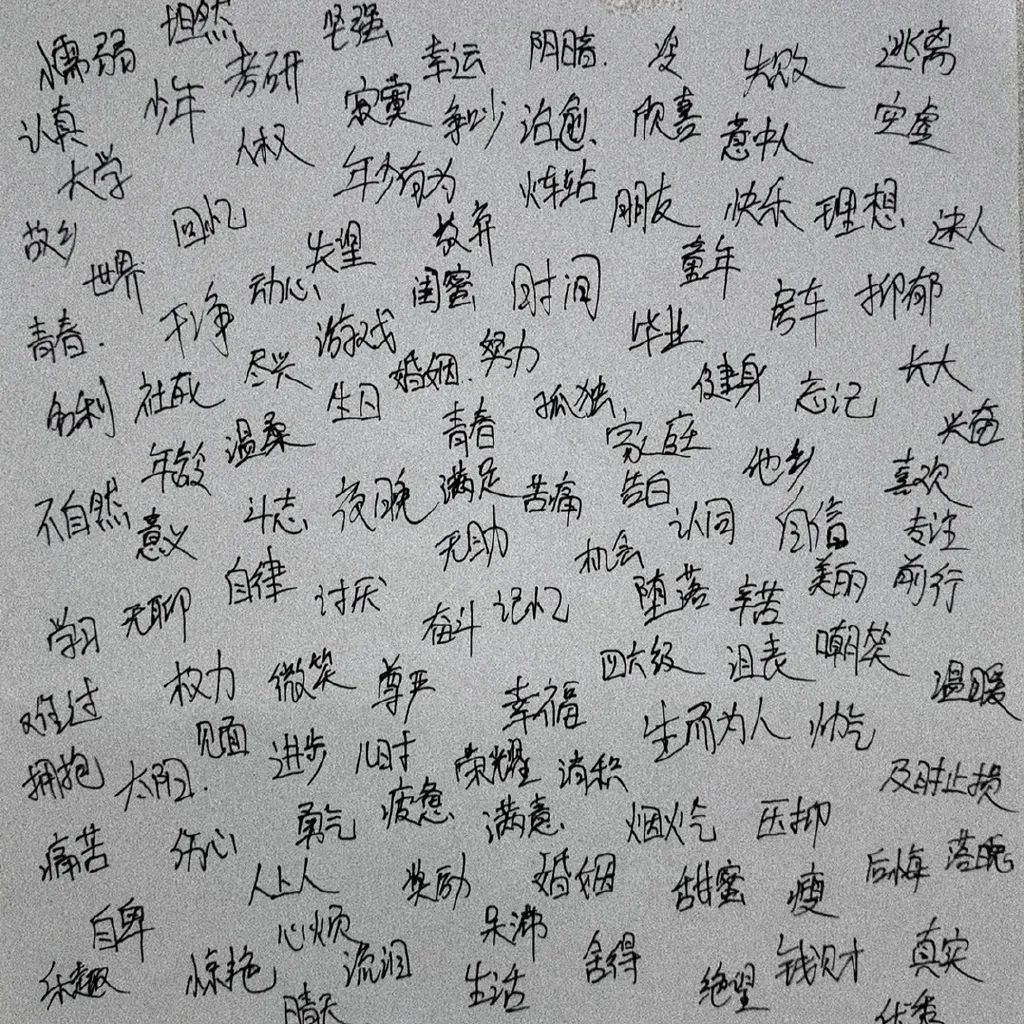 懦弱 坦然 坚强 幸运 阴暗 没 失败 逃离
认真 少年 考研 寂寞 争吵 治愈 欣喜 意中人 空虚
大学 人权 年少有为 火车站 朋友 快乐 理想 迷人
故乡 回忆 失望 放弃 童年
世界 动心 闺蜜 时间 房车 抑郁
青春 干净 游戏 努力 毕业
名利 社死 尽兴 生日 婚姻 孤独 健身 忘记 长大
年龄 温柔 青春 家庭 他乡 兴奋
不自然 意义 斗志 夜晚 满足 苦痛 告白 认同 自信 喜欢 专注
无助 机会
学习 无聊 自律 讨厌 奋斗 记忆 堕落 辛苦 美丽 前行
难过 权力 微笑 尊严 幸福 四六级 泪表 嘲笑 温暖
拥抱 太阳 见面 进步 儿时 荣耀 消积 生而为人 帅气 及时止损
痛苦 伤心 勇气 疲惫 满意 烟火气 压抑 后悔 落晚
人上人 奖励 婚姻 甜蜜 瘦
自卑 心烦 呆沸 舍得 钱财 真实
乐趣 惊艳 流泪 生活 绝望
晴天 优秀